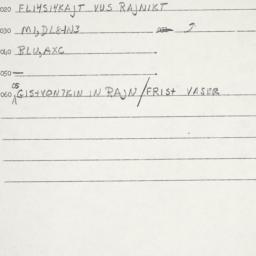 020 FLI4SI4KAJT VUS RAJNIKT
030 MI,DLE4N3 ?
040 BLU,AXC
050 —
060 05 GIS4VON7KIN IN RAJN/FRIS4 VASER